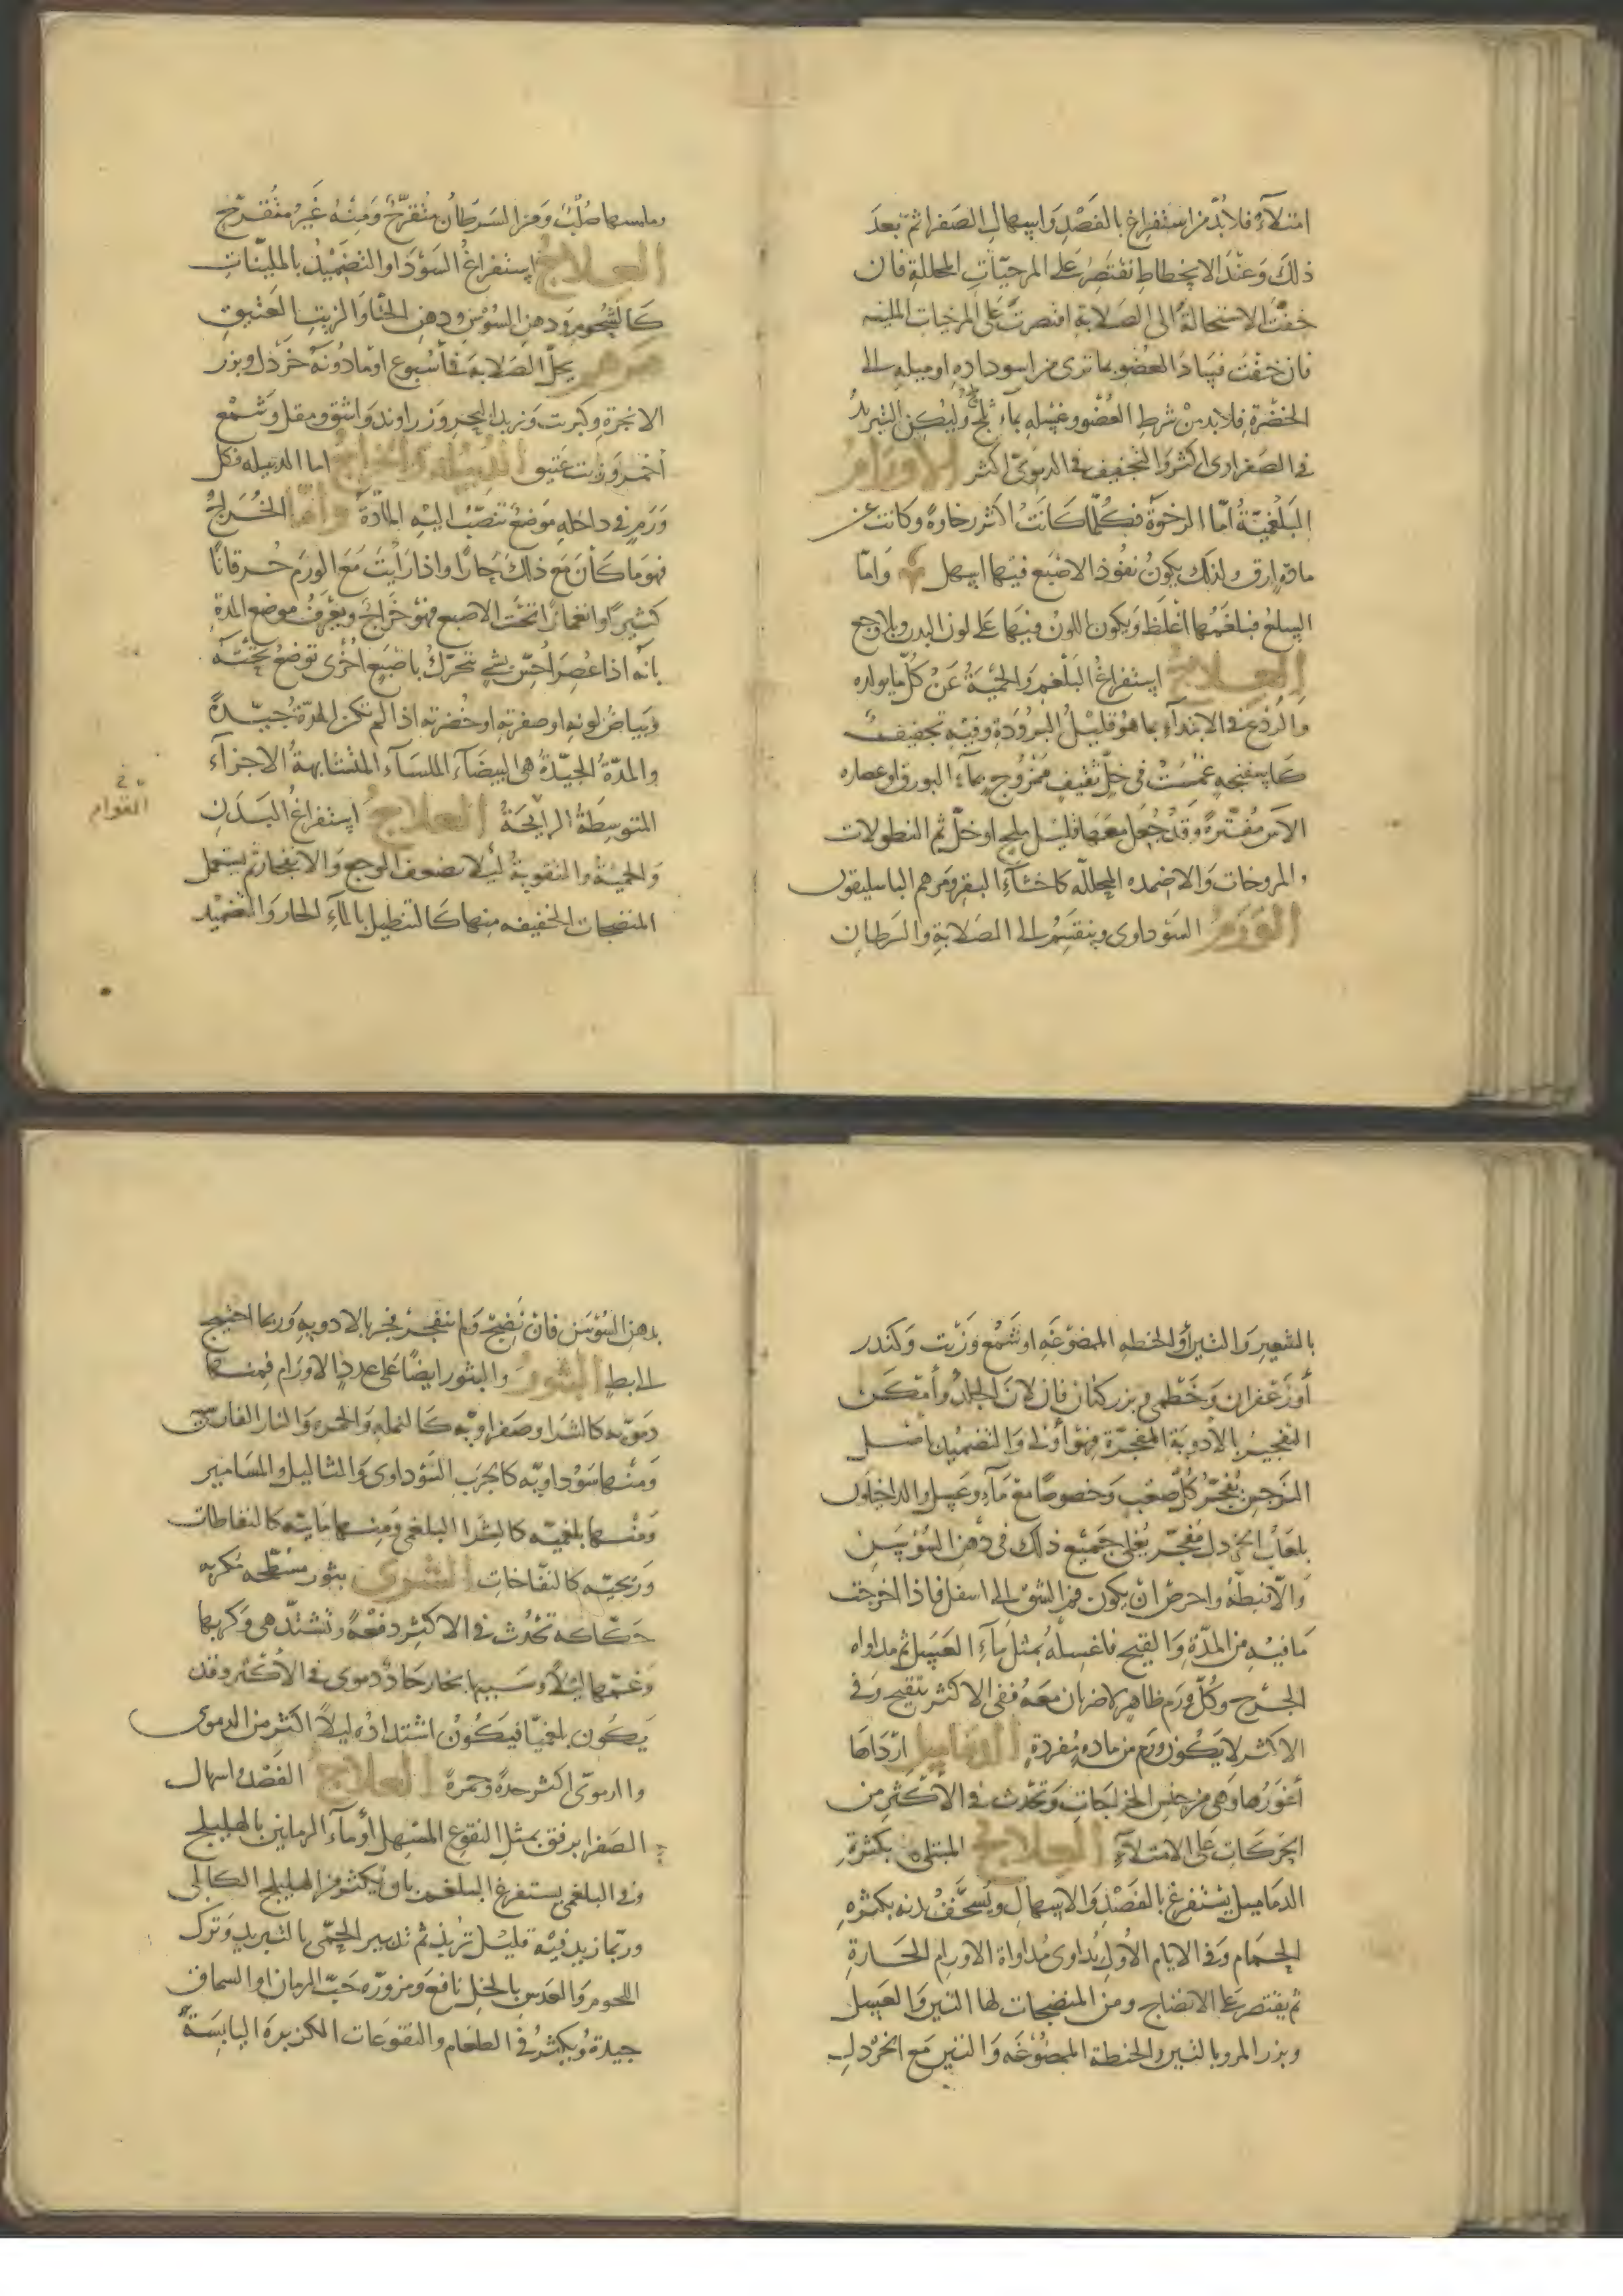 امتلآء فلابد من استفراغ بالفَصْدِ وَاسهالِ الصَفرا ثمّ بعدَ
ذلكَ وَعنْدَ الانحطاطِ تقتَصِرُ على المرخيّاتِ المحللةِ فان
خفْتَ الاستحالةَ الى الصَلابةِ اقتصرتَ على المرخيات الملينه
فان خفْتَ فسَادَ العضوِ بما ترى من اسودادِهِ اوميلهِ الى
الخضْرةِ فلابد منْ شرطِ العُضْو وغسله بمآءِ ثلج وَليكن التبريدُ
فى الصَفراوى اكثر وَالتجفيف فى الدموىّ اكثر الاورَامُ
البَلغميّةُ امّا الرخوَة فكلّما كَانَتْ اكثر رخاوةً وكانت عن
مادةٍ ارق ولذلك يكونُ نفُوذ الاصْبَع فيهَا اسهل وَامّا
السِلَعُ فبلغمُها اغلظ وَيكون اللونُ فيهَا على لون البدن وبلا وجع
العِلاجُ اِستفراغُ البَلْغمِ وَالحِمْيَةُ عَنْ كلّ ما يولده
وَالرَدْع فى الابتدآءِ بما هُو قليْلُ البرُودَةِ وفيْهِ تجفيفٌ
كاسفنجه غمْسَتْ فى خلّ ثقيفٍ ممْزُوجٍ بمآءِ البورق اوعصاره
الآس مفتّرةً وَقدْ جُعِل معهَا قليْل ملح اوخلّ ثم النطولات
والمروخات وَالاضمده المحللّه كاخثآءِ البقر ومرهم الباسليقون
الوَرَمُ السَوداوى وينقسِمُ الى الصَلابةِ والسَرطان
وملمسها صُلْبٌ وَمن السَرطان متقرّحٌ وَمِنْهُ غَيْرُ متقرّح
العِلاجُ اِستفراغُ السَوْدَا وَالتضْمِيْدُ بالمليّناتِ
كَالشحُومِ وَدهن السُوسَن ودهن الحنّا وَالزيتِ العَتيقِ
مرهم يحلّ الصَلابَة فى أسبوع اومَا دُونَهُ خرْدل وبزر
الانجرة وكبريت وَزبد البحر وَزراوند وَاشق ومقل وَشمْع
أحمر وزيت عتيق الدُبيلَة والخراجُ اما الدبيله فكل
وَرَمٍ فى داخلهِ مَوضعٌ تنصبّ اليهِ المادّة وَأمّا الخُراجُ
فهو مَا كَانَ مَعَ ذلكَ حَارّا واذا رَأيْتَ مَعَ الورَمِ
كثيرًا وانغمازًا تحْتَ الاصبع فهوَ خُراجٌ ويعْرَفُ موضع المدةِ
بانّه اذا عُصِرَ أحسّ بشئ يتحرّكُ باصْبَعٍ اخْرى تُوضَعُ تحْتَهُ
وَبيَاض لونهِ اوصفرتهِ اوخُضرته اذا لم تكن المدّةُ جيّدةً
والمدّة الجيّدةُ هى البيضَآء الملسَآء المتشابهةُ الاجزآء
المتوسِطَةُ الرايحَةُ العلاجُ اِستفراغُ البَدَنِ
القوام
وَالحميَة والتقويةُ ليْلا يضعف الوجع وَالانفجار ثم يستعمل
المنضجات الخفيفه منها كَالتنطيل بالمآءِ الحار وَالتضميْد
بالشعِير وَالتين أو الحنطه الممضوغه اوشَمْع وَزيْت وَكندر
أوزَعْفران وَخَطْمى وبزر كتان فان لانَ الجلدُ وأمْكَن
التفجيْرُ بالأدويَة المفجّرة فهُو أولى وَالتضميْد باصْل
النَرجس يُفَجّرُ كلّ صَعْبٍ وَخصوصًا معَ مَآءٍ وعَسل والداخليون
بلعَابْ الخرْدل مُفجّر يُغلى جَميْع ذلك فى دُهْن السُوْسَن
وَالّا فبُطّهُ واحرصْ انْ يكون فم الشق الى اسفل فاذا اخرجْت
مَا فيْهِ من المدّةِ وَالقيْح فاغسلهُ بمثْل مآءِ العَسَل ثم مداواه
الجَرْح وكُلّ وَرَم ظاهر لا ضربان معَهُ ففى الاكثر يتقيّح وَفى
الاكثر لا يَكُون ورَم من ماده مفردةٍ الدَمَامِيل ارْدَاهَا
أغوَرُها وَهى من جنس الخراجَاتِ وَتَحْدُث فى الأكْثرِ من
الحَرَكَات على الامتلآءِ العِلاجُ المبتلى بكثرةِ
الدمَاميل يسْتفرغ بالفَصْدِ وَالاسهالِ ويُسَخَّفُ بدنه بكثرهِ
الحَمَام وَفى الايام الأولِ يُداوى مُداواة الاورام الحَارةِ
ثم يقتصر على الانضاج ومن المنضجات لها التين وَالعَسل
وبزر المرو بالتين والحنطة الممضُوْغَه وَالتين مَع الخرْدل
بدهن السُوسَن فان نَضِجَ وَلم ينفجرْ فجر بالادويه وَربما احتيج
الى البط البثُورُ وَالبثور ايضًا على عدد الاورام فمنها
دمَويّه كالشرا وصَفراويّه كَالنمله وَالجمره والنار الفارسيّه
وَمنْها سَوْداويّه كالجَرَب السَوْداوى وَالثاليل والمسَامير
وَمنْها بلغميّه كالشرا البلغمى وَمنها مَائيّه كالنفاطات
وَريحيّه كالنفّاخاتِ الشرى بثور مسَطّحه مكربه
حَكّاكه تحْدُث فى الاكثر دفعْةً وَتشتدّ هى وَكربها
وَغمّها ليْلاً وسَببها بخار حَادّ دموى فى الأكثر وقد
يَكُون بلغميّا فيَكُوْن اشتدادُه ليْلاً اكثر من الدموى
وَالدموىّ اكثر حدةً وَحمرةً العلاجُ الفَصْد واسهال
الصَفرا برفق بمثل النقوع المسْهل أومآء الرمانين بالهليلج
وفى البلغمى يستفرغ البلغم بان يُكثر من الهليلج الكابلى
وربّما زيد فيْه قليْل تُربد ثم تدبير الحِمّى بالتبريدِ وَترك
اللحوم وَالعَدس بالخلِ نافع وَمزورّه حَبّ الرمان اوالسماق
جيدة وَيُكثرُ فى الطعَام والنقوعَات الكزبرة اليَابسَة